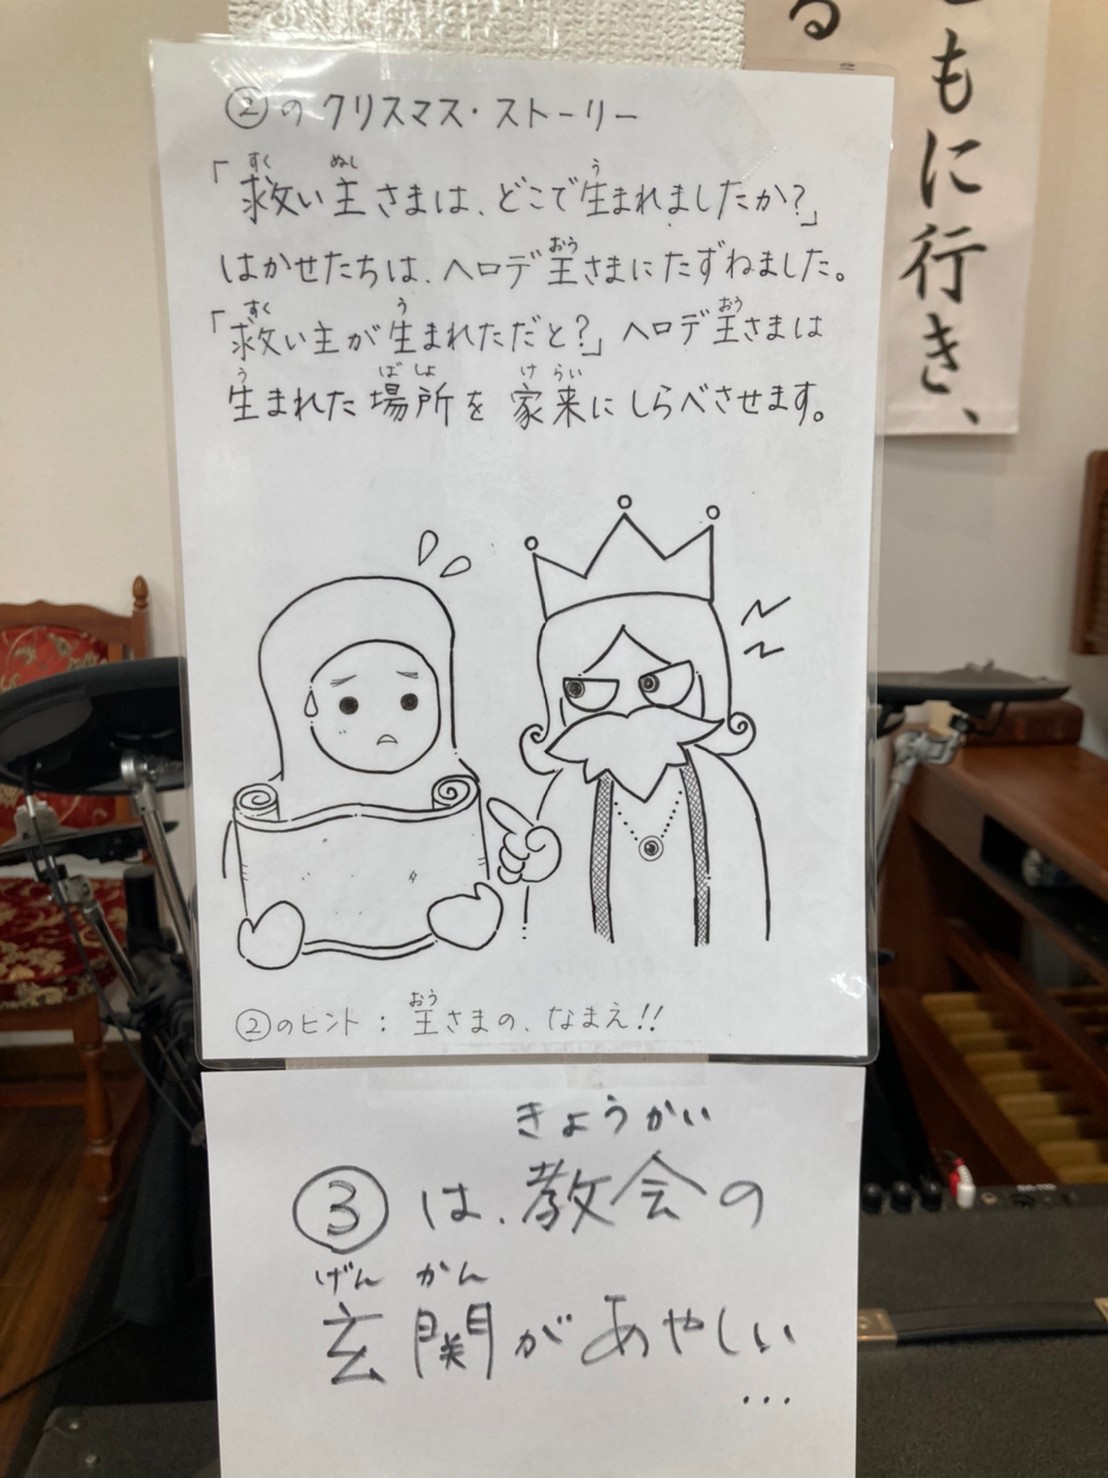 ②のクリスマス・ストーリー
「救い主さまは、どこで生まれましたか?」
はかせたちは、ヘロデ王さまにたずねました。
「救い主が生まれただと?」ヘロデ王さまは
生まれた場所を家来にしらべさせます。
②のヒント:王さまの、なまえ!!
きょうかい
③は、教会の
げんかん
玄関があやしい
...
る
もに行き、